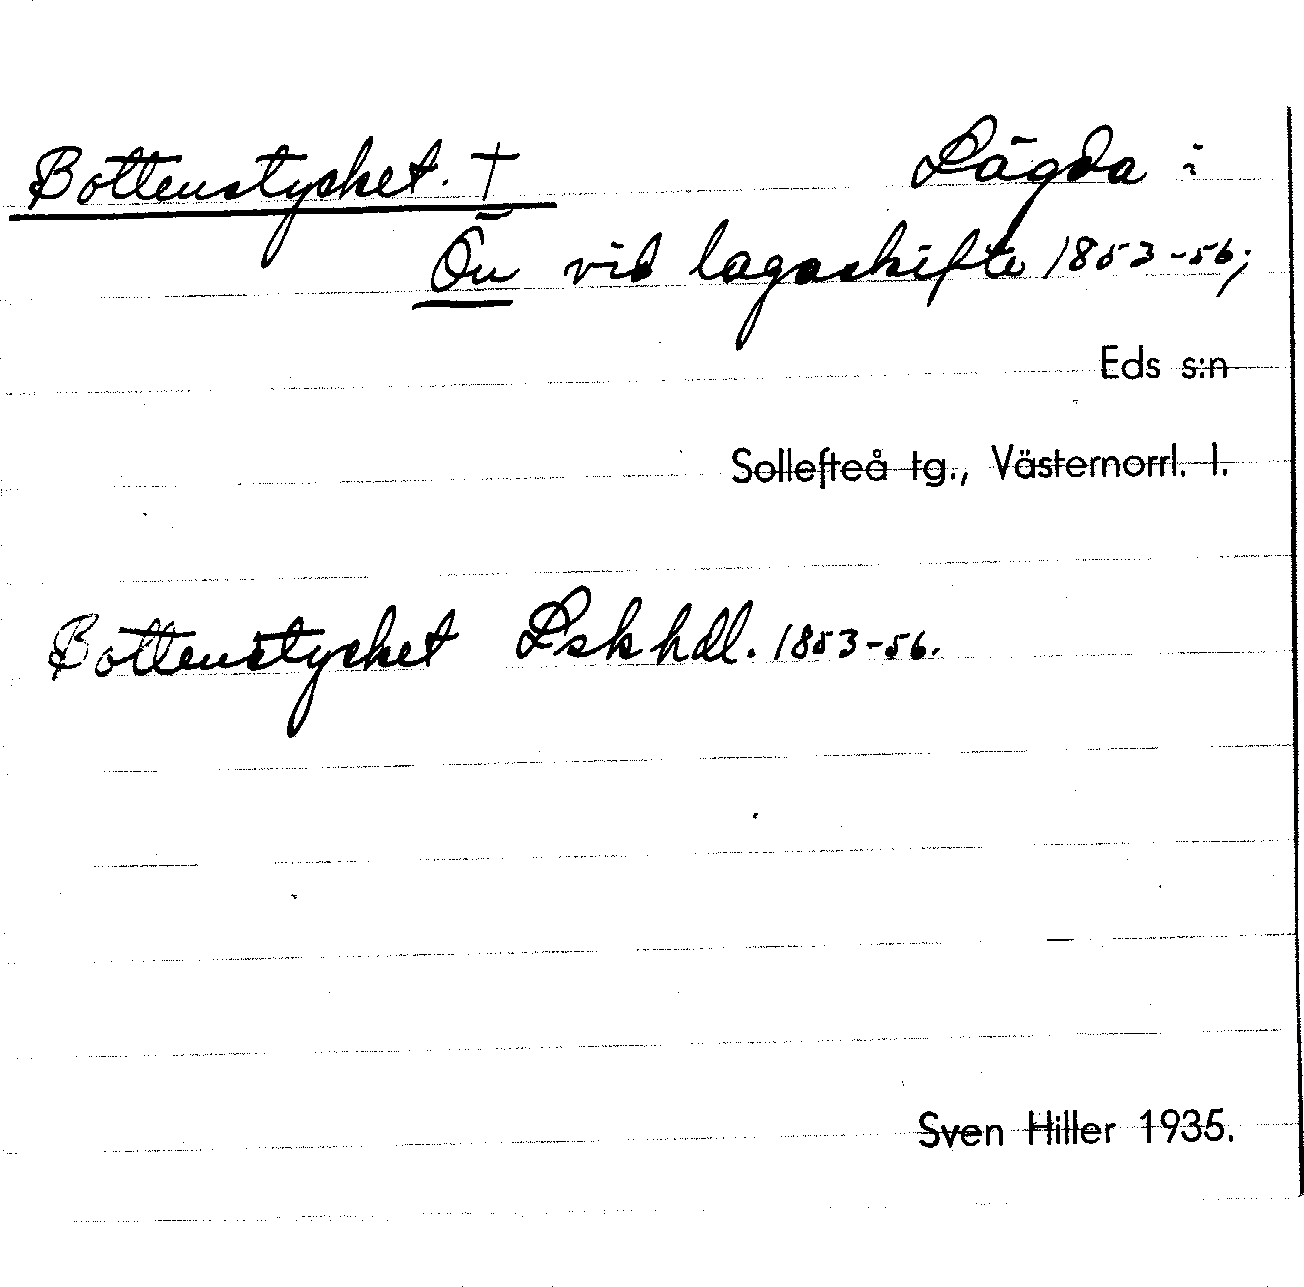 Bottenstycket. † Lägda i
Ön vid lagaskifte 1853-56;
Eds s:n
Sollefteå tg., Västernorrl. l.
Bottenstycket Lskhdl. 1853-56.
Sven Hiller 1935.